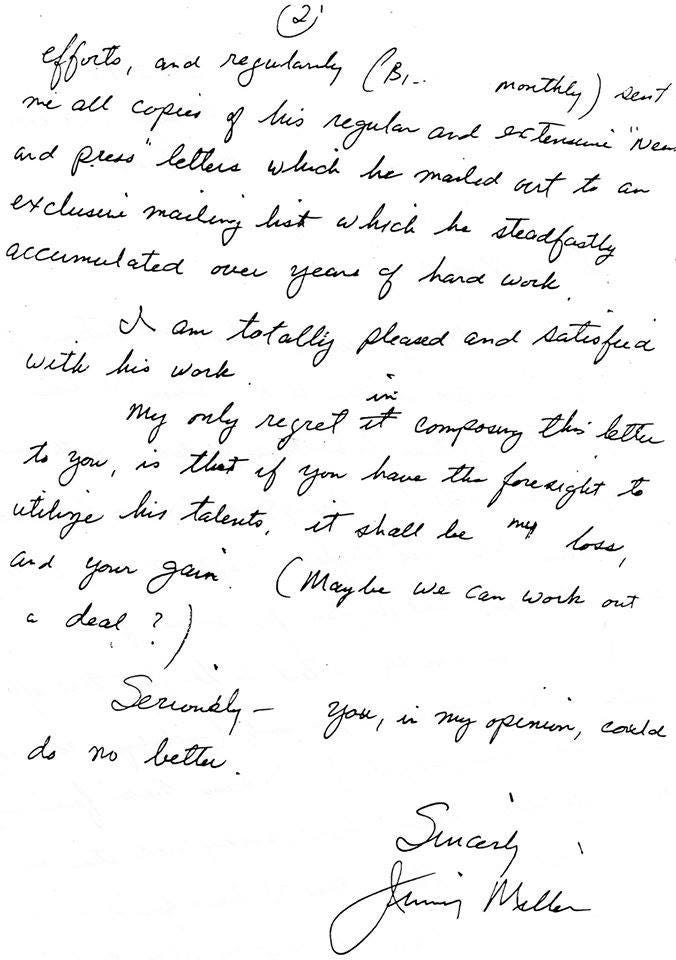 (2)
efforts, and regularly (Bi- monthly) sent
me all copies of his regular and extensive "News
and press" letters which he mailed out to an
exclusive mailing list which he steadfastly
accumulated over years of hard work.
I am totally pleased and satisfied
with his work.
in
My only regret it composing this letter
to you, is that if you have the foresight to
utilize his talents, it shall be my loss,
and your gain. (Maybe we can work out
a deal?)
Seriously— you, in my opinion, could
do no better.
Sincerly
Jimmy